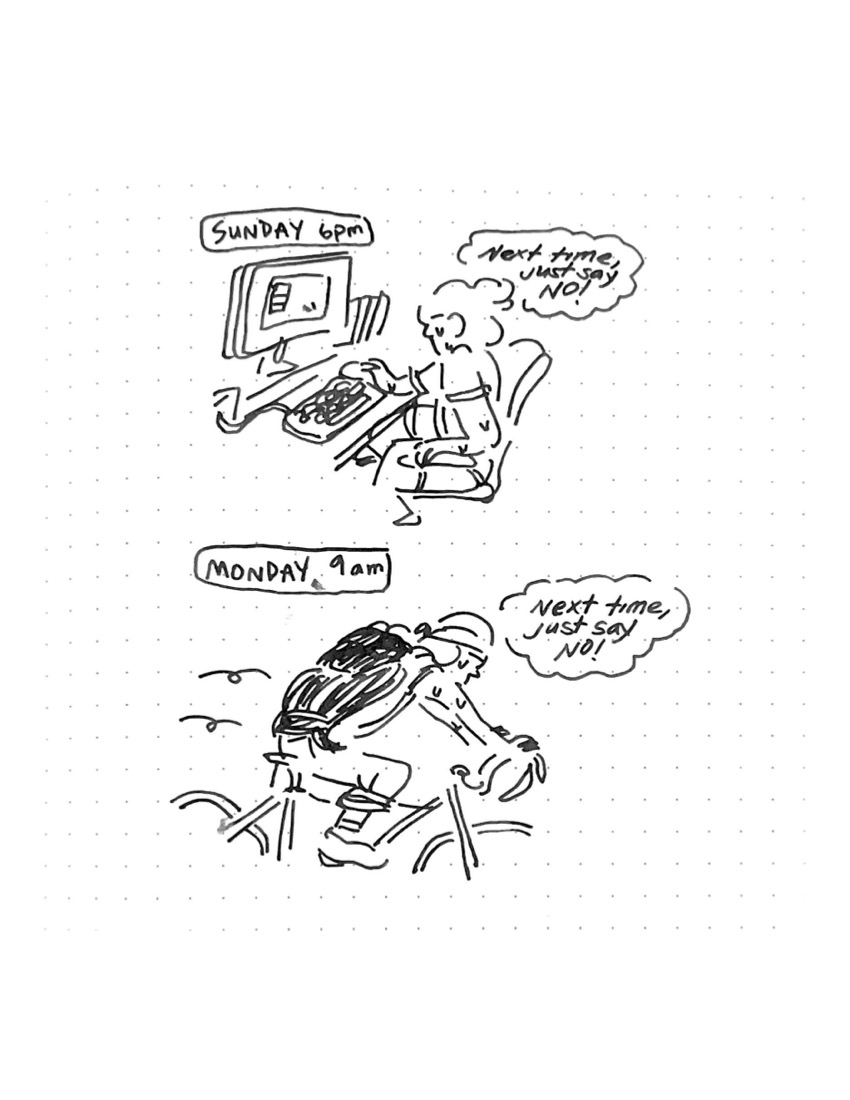 SUNDAY 6pm
Next time,
just say
NO!
MONDAY 9am
Next time,
just say
NO!